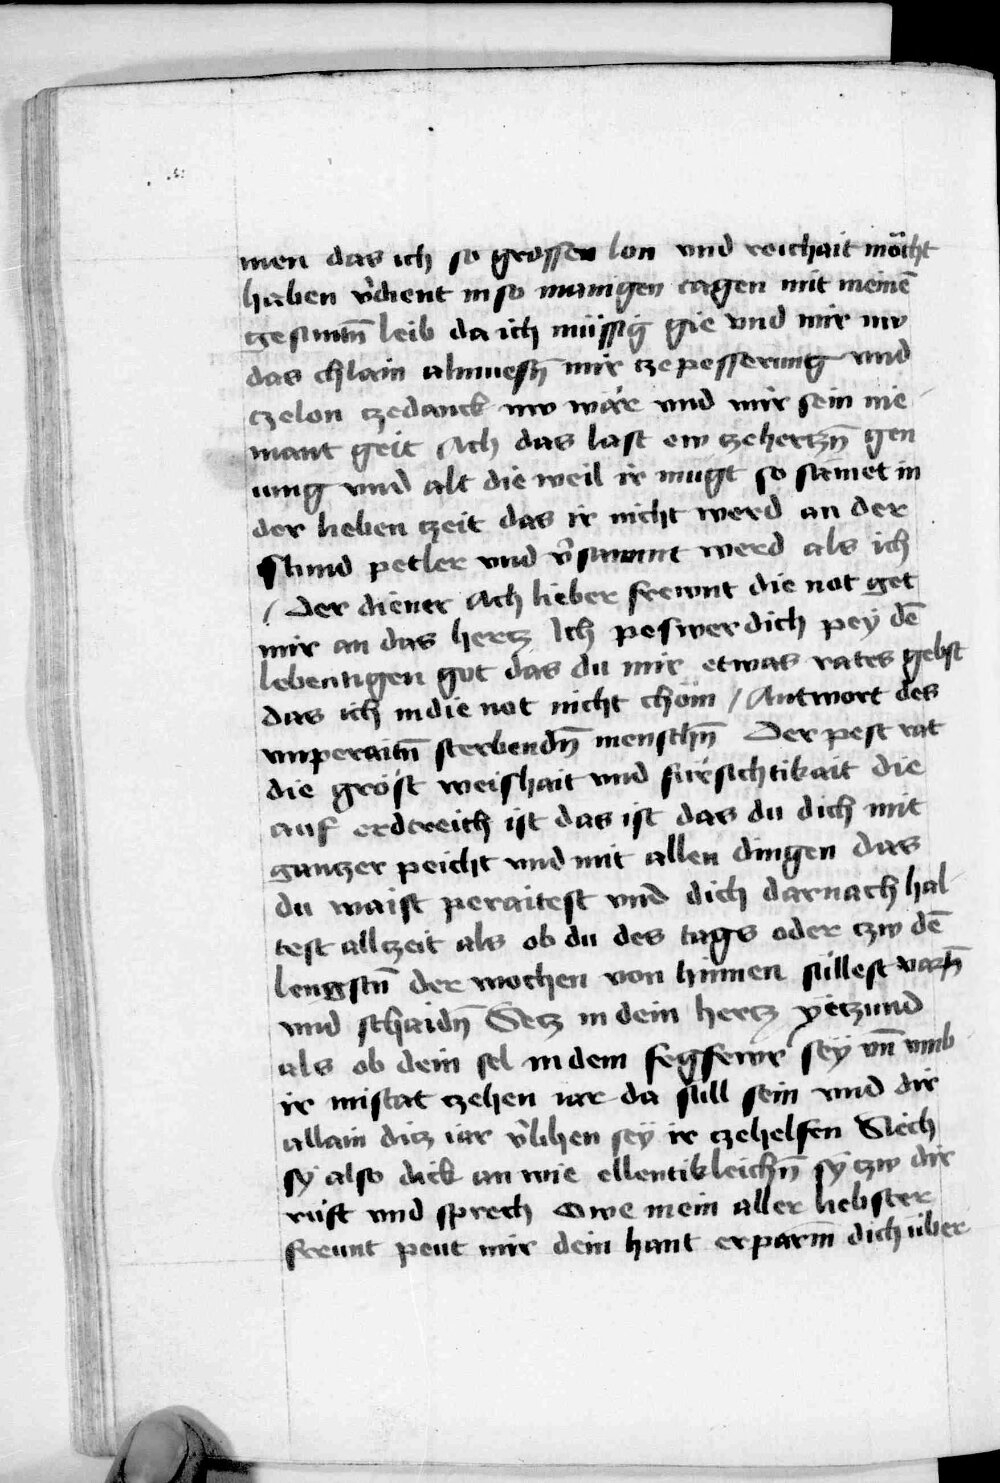 men das ich so grossen lon vnd reichait möcht
haben v̄dient in so manigen tagen mit meinē
gesuntn̄ leib da ich müssig gie vnd mir nw
das chlain almuesn̄ mir cze pesserung vnd
czelon czedanck nw wär vnd mir sein nie
mant geit Ach das last ew czehertzn̄ gen
iung vnd alt die weil ir mügt so samet in
der lieben czeit das ir nicht werd an der
stund petler vnd v̄sawmt werd als ich
/ Der diener Ach lieber frewnt die not get
mir an das hertz Ich peswer dich pey dē
lebentigen got das du mir etwas rates gebst
das ich in die not nicht chöm / Antwort des
vnperaitn̄ sterbendn̄ menschn̄ Der pest rat
die gröst weishait vnd fürsichtikait die
auf erdtreich ist das ist das du dich mit
gantzer peicht vnd mit allen dingen das
du waist peraitest vnd dich darnach hal
test allczeit als ob du des tags oder czw dē
lengstn̄ der wochen von hinnen süllest varn̄
vnd schaidn̄ Setz in dein hertz yetzund
als ob dein sel in dem fegfewr sey vn̄ vmb
ir mistat czehen iar da süll sein vnd dir
allain ditz iar v̄lihen sey ir czehelfen Siech
sy also dick an wie ellentikleichn̄ sy czw dir
rüft vnd sprech Owe mein aller liebster
freunt peut mir dein hant erparm̄ dich über